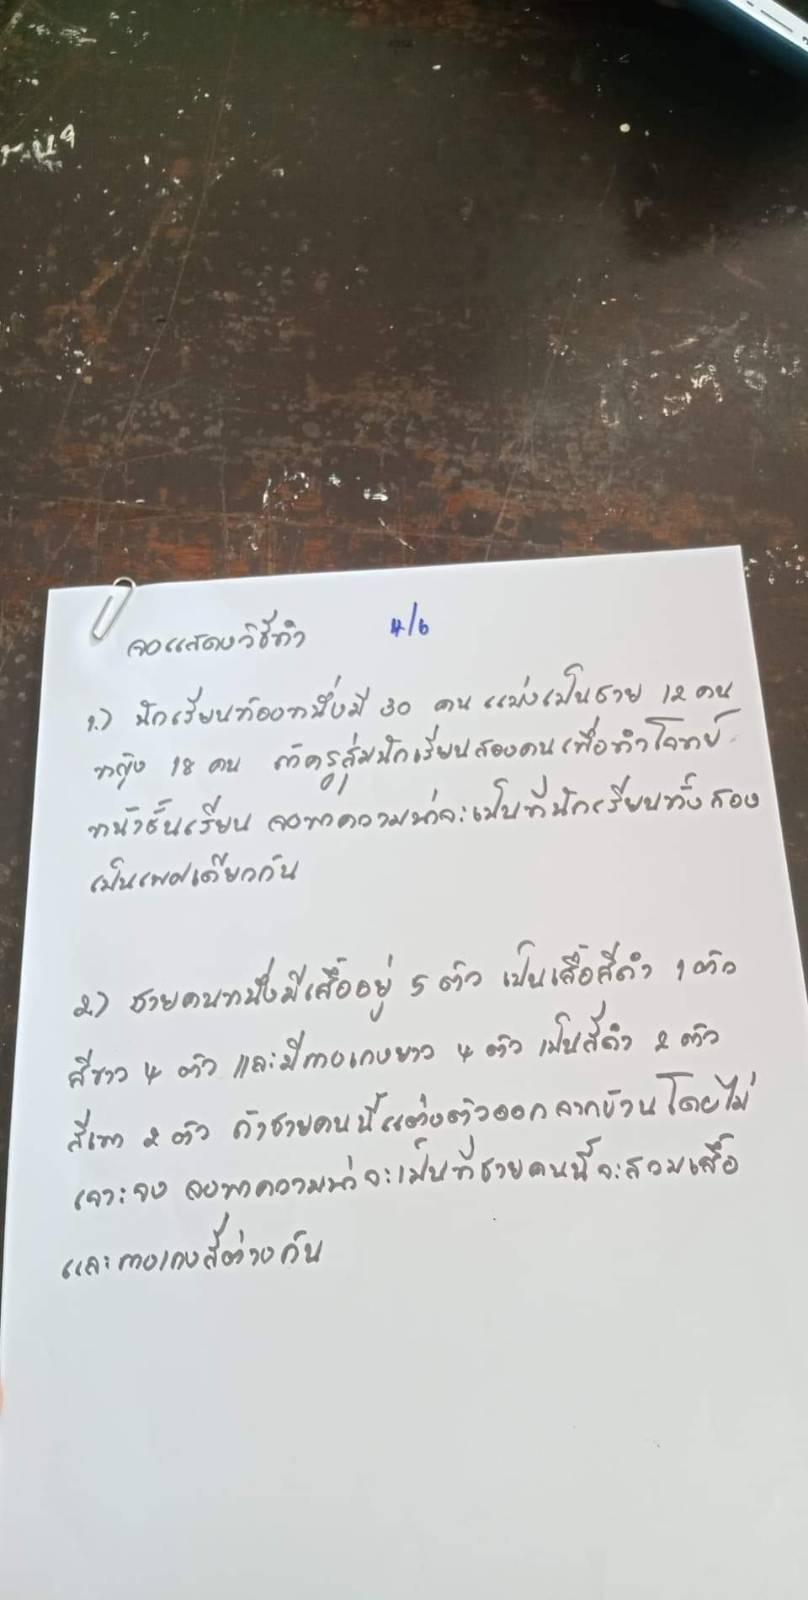 จงแสดงวิธีทำ 4/6
1.) นักเรียนห้องหนึ่งมี 30 คน แบ่งเป็นชาย 12 คน
หญิง 18 คน ถ้าครูสุ่มนักเรียนสองคนเพื่อทำโจทย์
หน้าชั้นเรียน จงหาความน่าจะเป็นที่นักเรียนทั้งสอง
เป็นเพศเดียวกัน
2.) ชายคนหนึ่งมีเสื้ออยู่ 5 ตัว เป็นเสื้อสีดำ 1 ตัว
สีขาว 4 ตัว และมีกางเกงขายาว 4 ตัว เป็นสีดำ 2 ตัว
สีเทา 2 ตัว ถ้าชายคนนี้แต่งตัวออกจากบ้านโดยไม่
เจาะจง จงหาความน่าจะเป็นที่ชายคนนี้จะสวมเสื้อ
และกางเกงสีต่างกัน